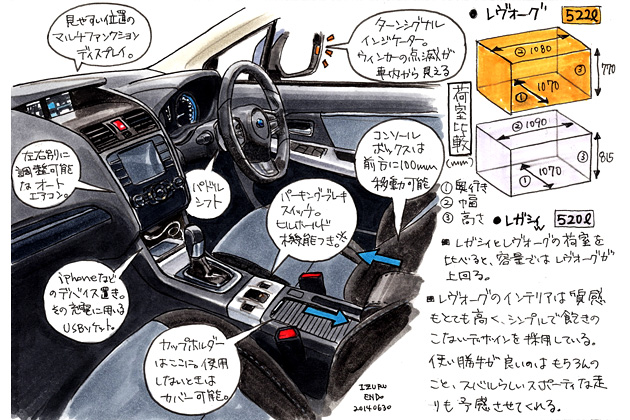 見やすい位置の
マルチファンクション
ディスプレイ。
ターンシグナル
インジケーター。
ウィンカーの点滅が
車内から見える
左右別に
調整可能
なオート
エアコン。
パドル
シフト
パーキングブレーキ
スイッチ。
ヒルホールド
機能つき。
コンソール
ボックスは
前方に100mm
移動可能
iPhoneなど
のデバイス置き。
その充電に用いる
USBソケット。
カップホルダー
はここに。使用
しないときは
カバー可能。
IZURU
ENDO
20140630
● レヴォーグ 522ℓ
② 1080
③
① 1070
770
荷室比較
(mm)
② 1090
③
① 1070
815
① 奥行き
② 幅
③ 高さ
● レガシィ 520ℓ
レガシィとレヴォーグの荷室を
比べると、容量ではレヴォーグが
上回る。
レヴォーグのインテリアは質感
もとても高く、シンプルで飽きの
こないデザインを採用している。
使い勝手が良いのはもちろんの
こと、スバルらしいスポーティな走
りも予感させてくれる。